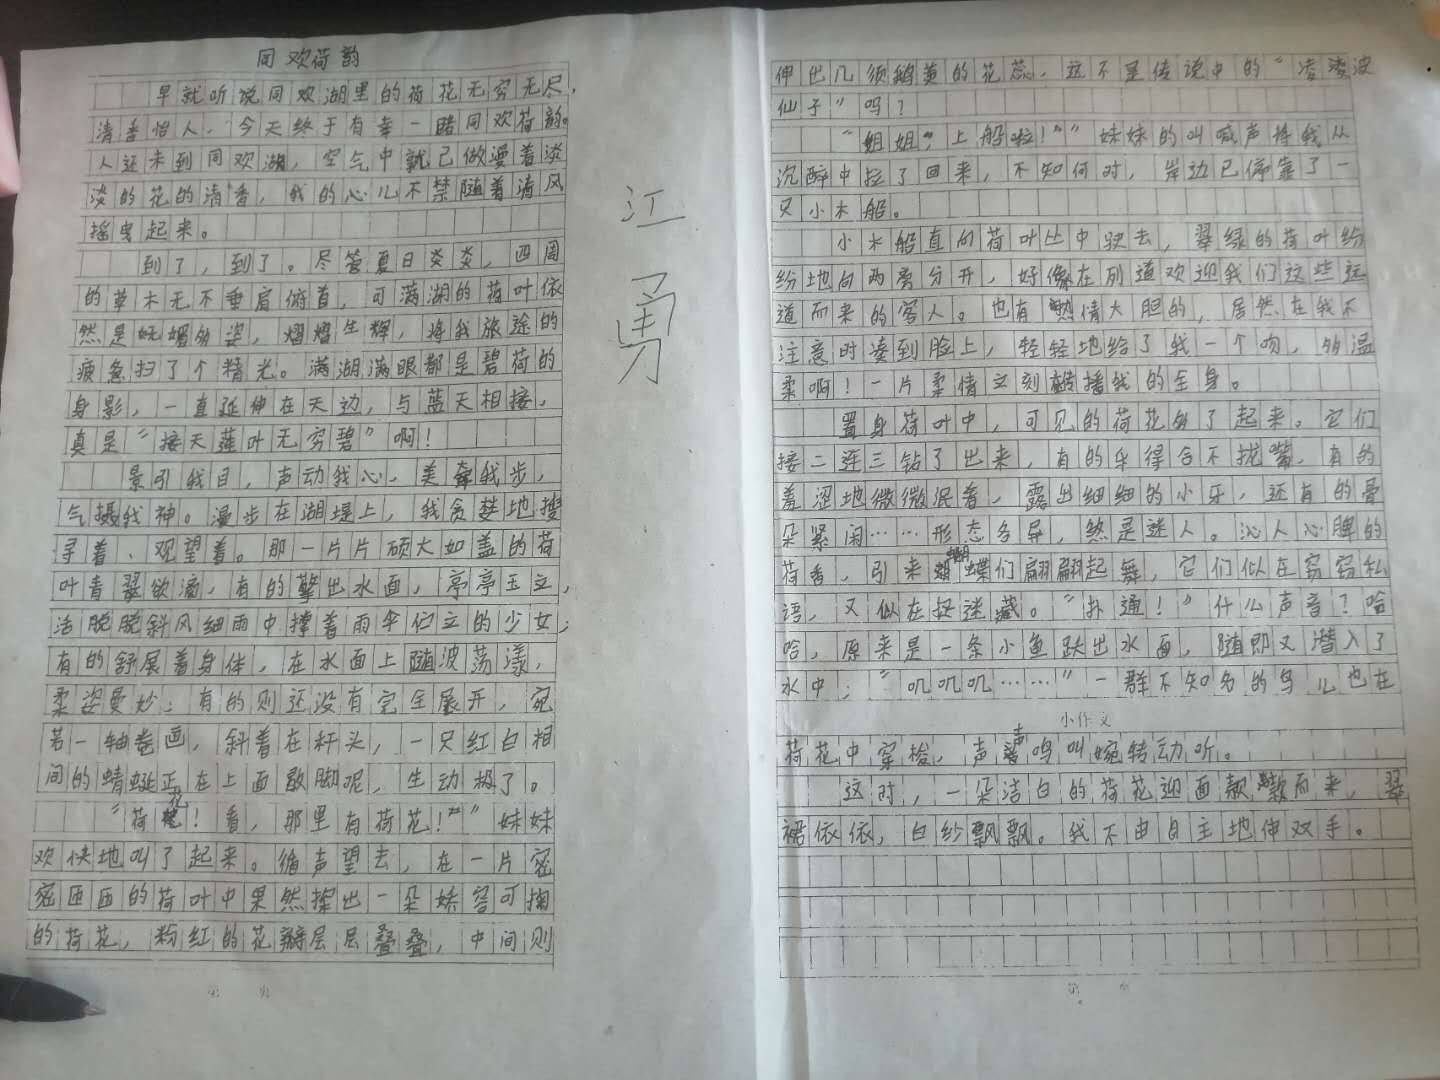 同欢荷韵
早就听说同欢湖里的荷花无穷无尽，
清香怡人，今天终于有幸一睹同欢荷韵。
人还未到同欢湖，空气中就已做漫着淡
淡的花的清香，我的心儿不禁随着清风
摇曳起来。
到了，到了。尽管夏日炎炎，四周
的草木无不垂肩俯首，可满湖的荷叶依
然是妩媚多姿，熠熠生辉，将我旅途的
疲惫扫了个精光。满湖满眼都是碧荷的
身影，一直延伸在天边，与蓝天相接，
真是“接天莲叶无穷碧”啊！
景引我目，声动我心，美牵我步，
气摄我神。漫步在湖堤上，我贪婪地搜
寻着、观望着。那一片片硕大如盖的荷
叶青翠欲滴，有的擎出水面，亭亭玉立，
活脱脱斜风细雨中撑着雨伞伫立的少女；
有的舒展着身体，在水面上随波荡漾，
柔姿曼妙；有的则还没有完全展开，宛
若一轴卷画，斜着在秆头，一只红白相
间的蜻蜓正在上面歇脚呢，生动极了。
“荷花！看，那里有荷花！”妹妹
欢快地叫了起来。循声望去，在一片密
密匝匝的荷叶中果然探出一朵娇容可掬
的荷花，粉红的花瓣层层叠叠，中间则
江
勇
伸出几须鹅黄的花蕊，这不是传说中的“凌凌波
仙子”吗？
“姐姐，上船啦！”妹妹的叫喊声将我从
沉醉中拉了回来，不知何时，岸边已停靠了一
又小木船。
小木船直向荷叶丛中驶去，翠绿的荷叶纷
纷地向两旁分开，好像在列道欢迎我们这些远
道而来的客人。也有热情大胆的，居然在我不
注意时凑到脸上，轻轻地给了我一个吻，多温
柔啊！一片柔情立刻传播我的全身。
置身荷叶中，可见的荷花多了起来。它们
接二连三钻了出来，有的乐得合不拢嘴，有的
羞涩地微微泯着，露出细细的小牙，还有的骨
朵紧闭……形态各异，煞是迷人。沁人心脾的
荷香，引来蝴蝶们翩翩起舞，它们似在窃窃私
语，又似在捉迷藏。“扑通！”什么声音？哈
哈，原来是一条小鱼跃出水面，随即又潜入了
水中；“叽叽叽……”一群不知名的鸟儿也在
小作文
荷花中穿梭，声声鸣叫婉转动听。
这时，一朵洁白的荷花迎面款款而来，翠
裙依依，白纱飘飘。我不由自主地伸双手。
第 页
第